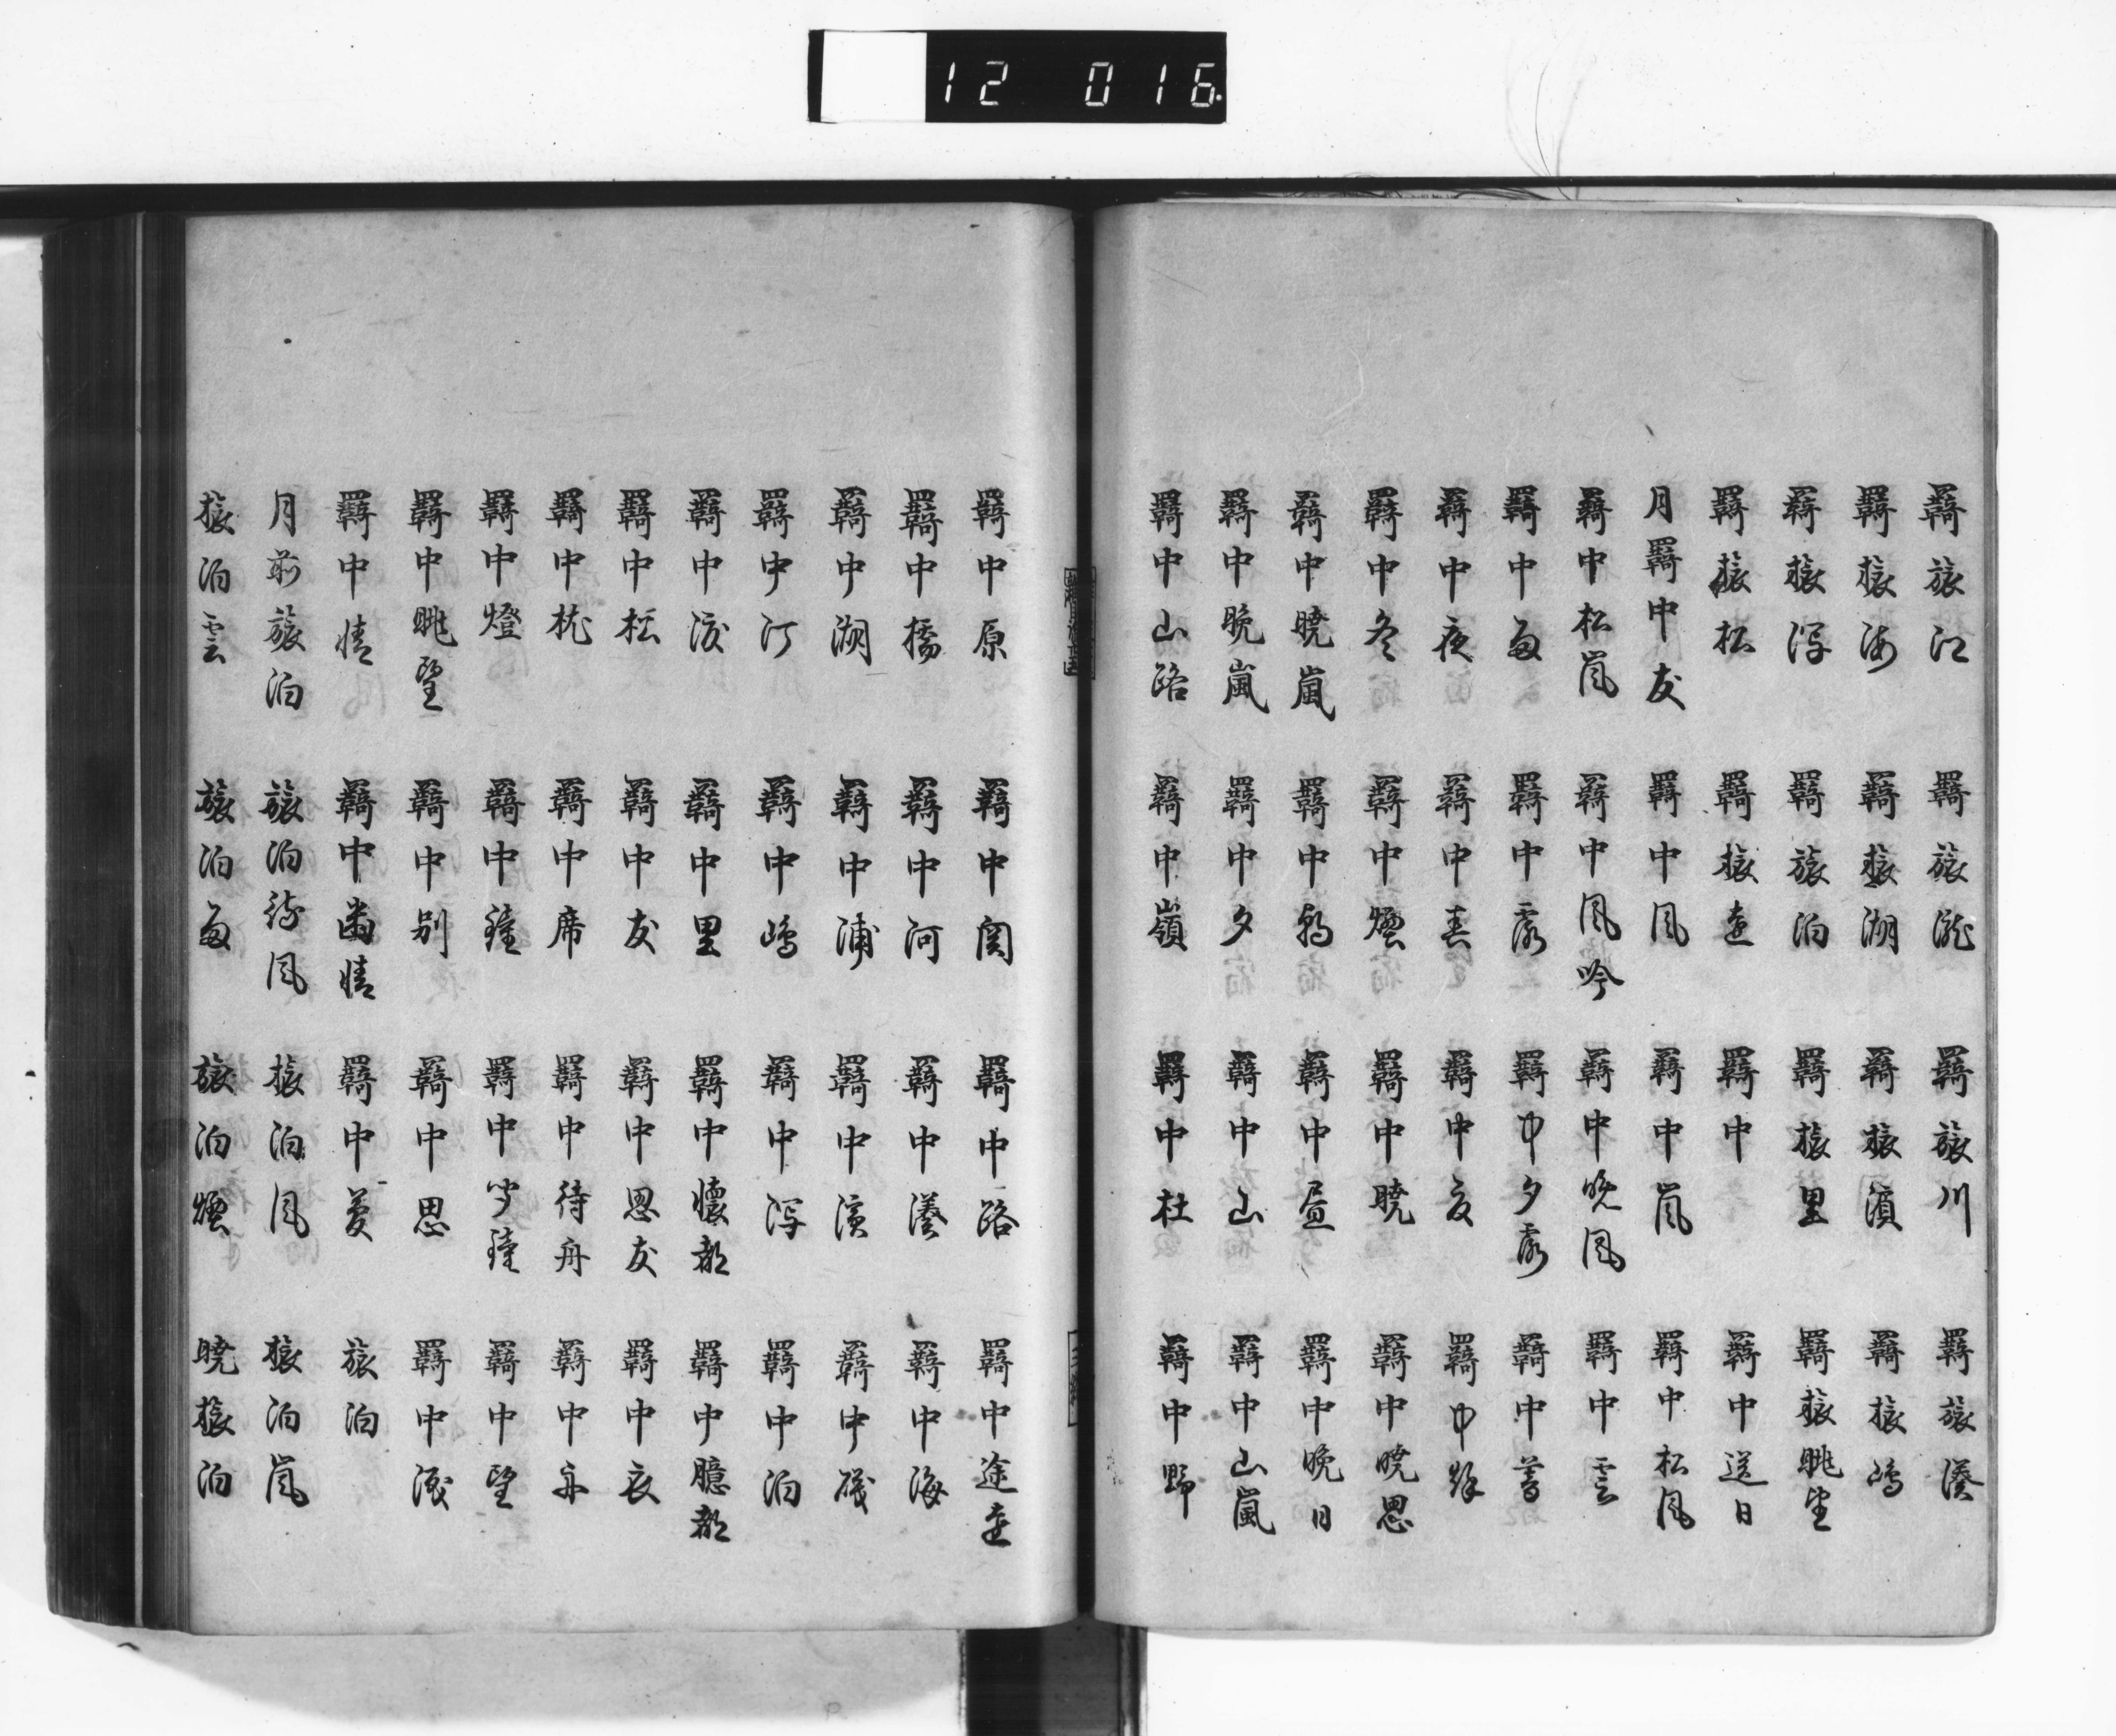 12 016
羇旅江 羇旅滝 羇旅川 羇旅湊
羇旅海 羇旅湖 羇旅濱 羇旅嶋
羇旅泻 羇旅泊 羇旅里 羇旅眺望
羇旅松 羇旅遠 羇中 羇中送日
月羇中友 羇中風 羇中嵐 羇中松風
羇中松嵐 羇中風吟 羇中晩風 羇中雲
羇中雨 羇中露 羇中夕露 羇中暮
羇中夜 羇中春 羇中夏 羇中秋
羇中冬 羇中煙 羇中暁 羇中暁思
羇中暁嵐 羇中朝 羇中昼 羇中晩日
羇中晩嵐 羇中夕 羇中山 羇中山嵐
羇中山路 羇中嶺 羇中杜 羇中野
羇中原 羇中関 羇中路 羇中途遠
羇中橋 羇中河 羇中湊 羇中海
羇中湖 羇中浦 羇中濱 羇中磯
羇中汀 羇中嶋 羇中泻 羇中泊
羇中渡 羇中里 羇中懐都 羇中臆都
羇中松 羇中友 羇中思友 羇中衣
羇中枕 羇中席 羇中待舟 羇中舟
羇中燈 羇中鐘 羇中聞鐘 羇中望
羇中眺望 羇中別 羇中思 羇中涙
羇中情 羇中幽情 羇中夢 旅泊
月前旅泊 旅泊待風 旅泊風 旅泊嵐
旅泊雲 旅泊雨 旅泊煙 暁旅泊